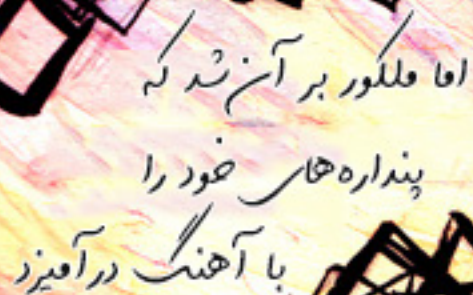 اما ملکور بر آن شد که
پنداره‌های خود را
با آهنگ درآمیزد